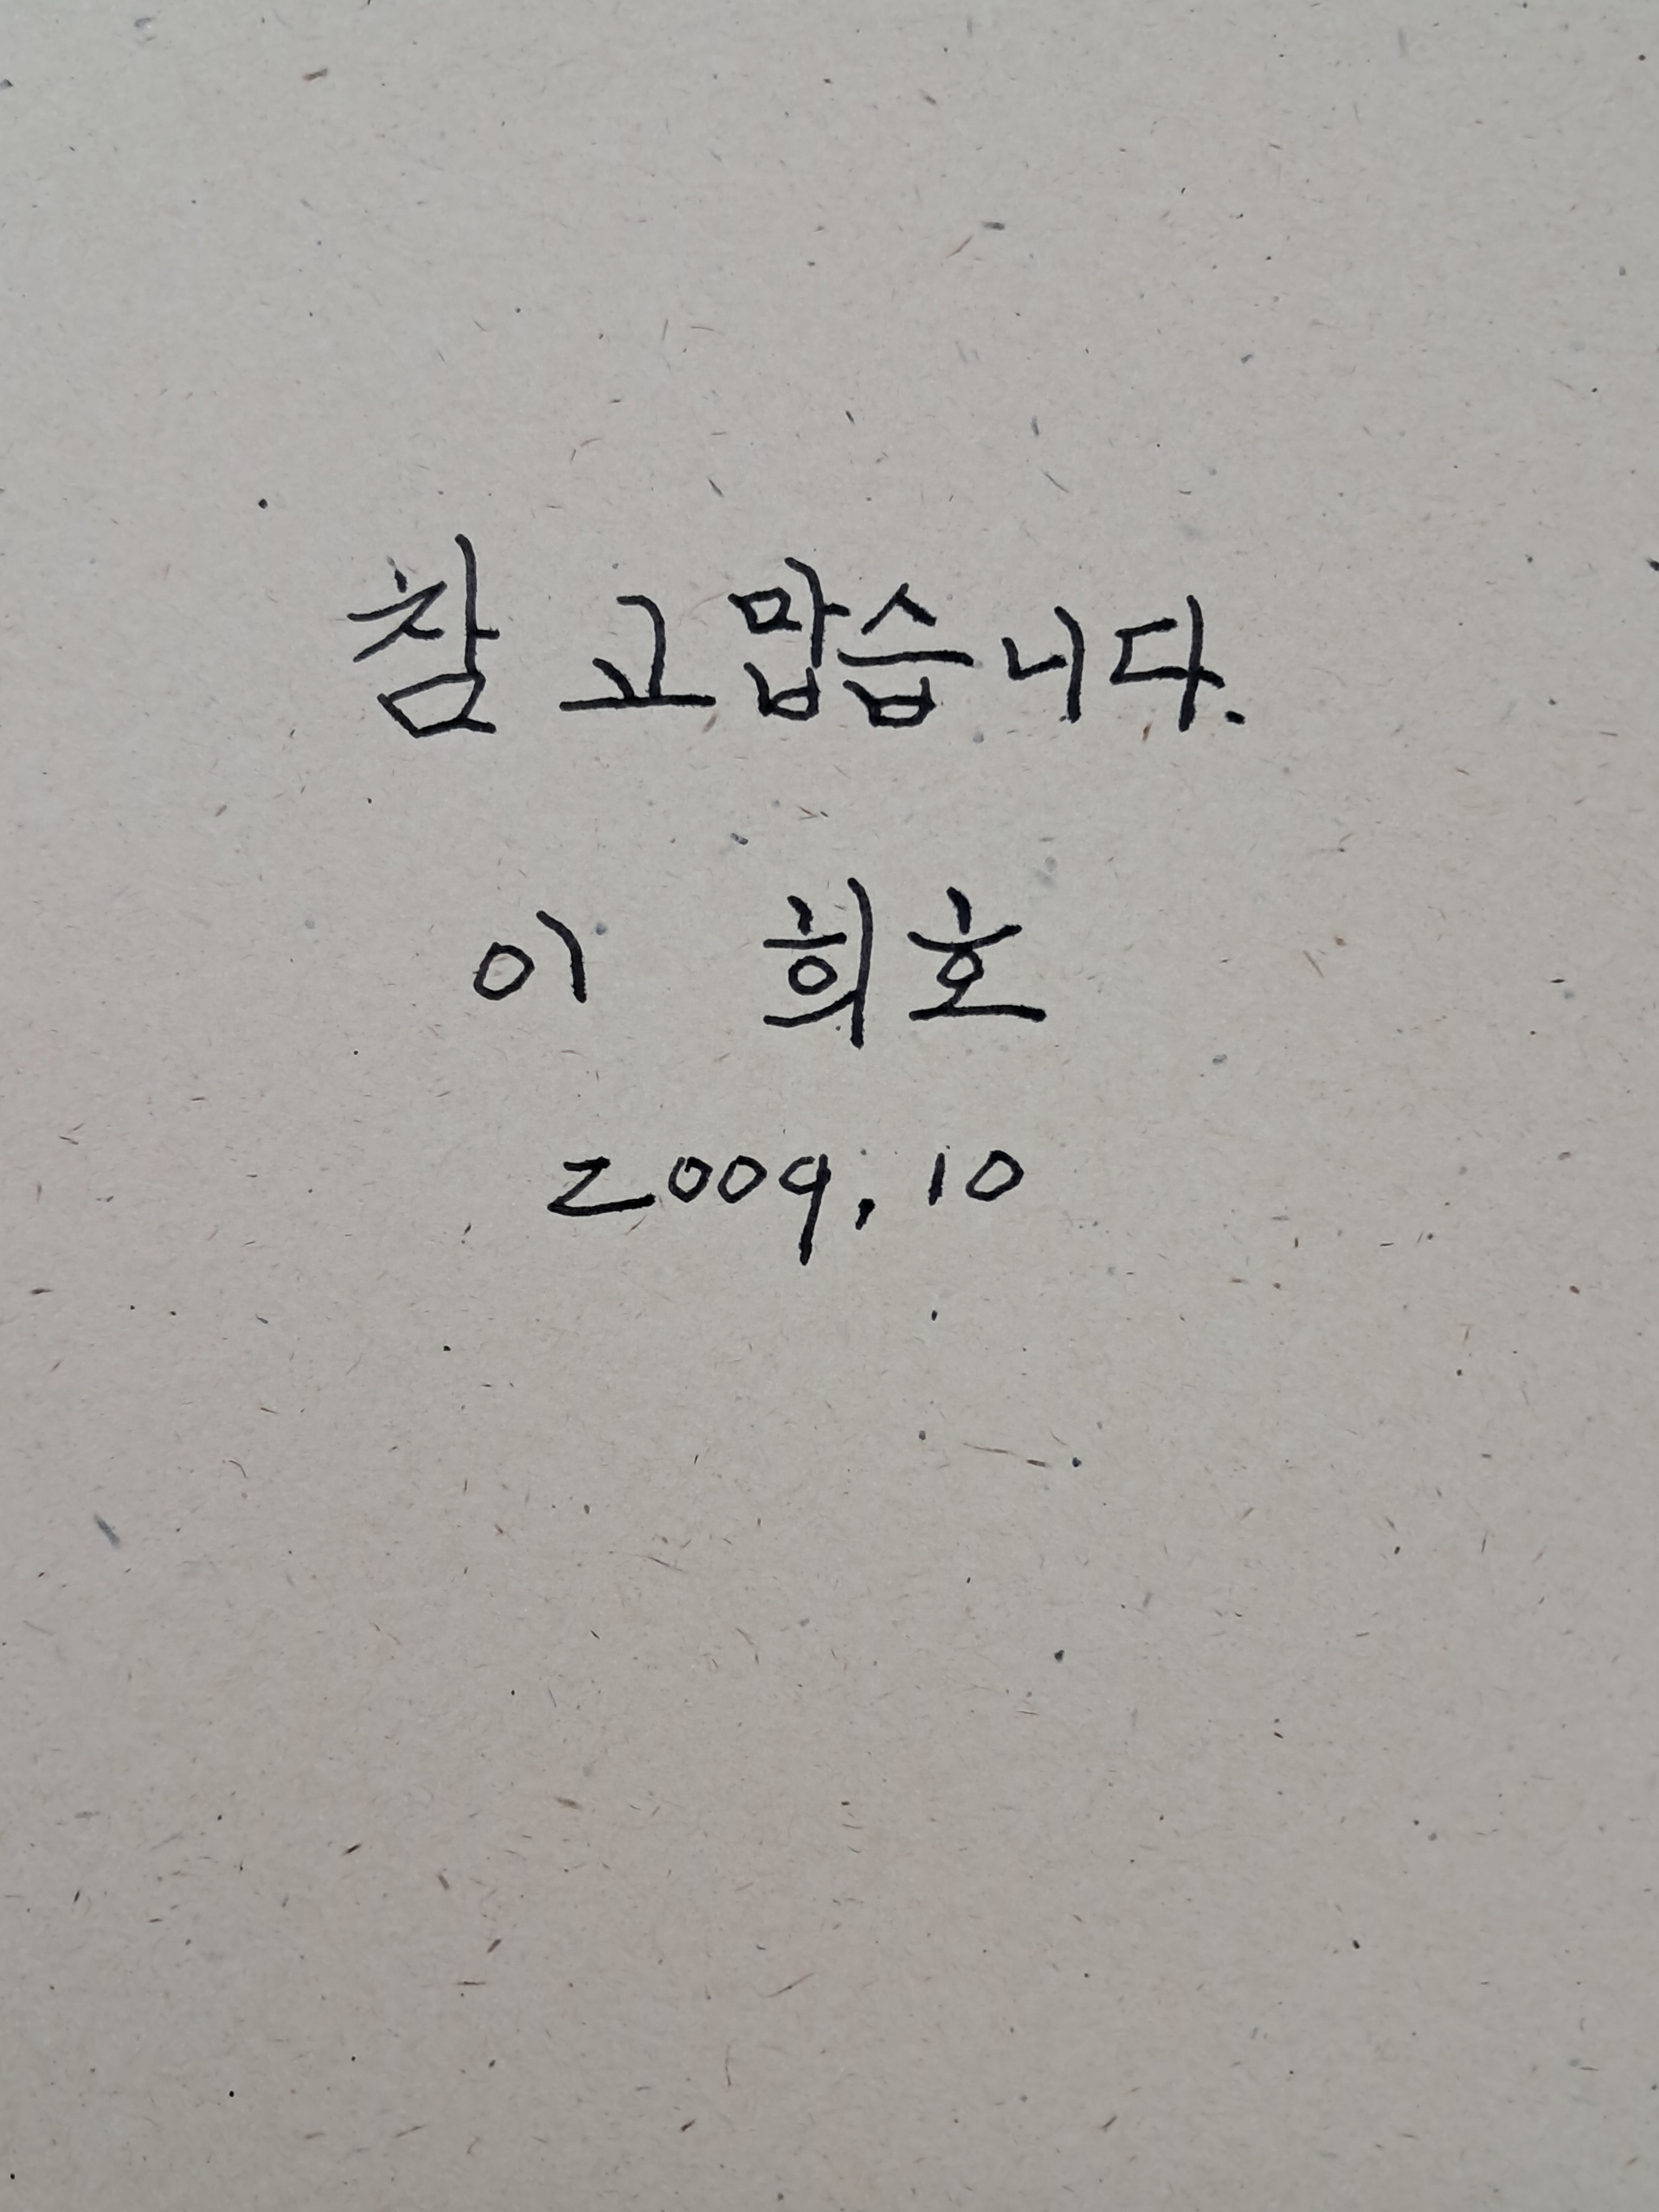 참 고맙습니다.
이 희호
2009. 10